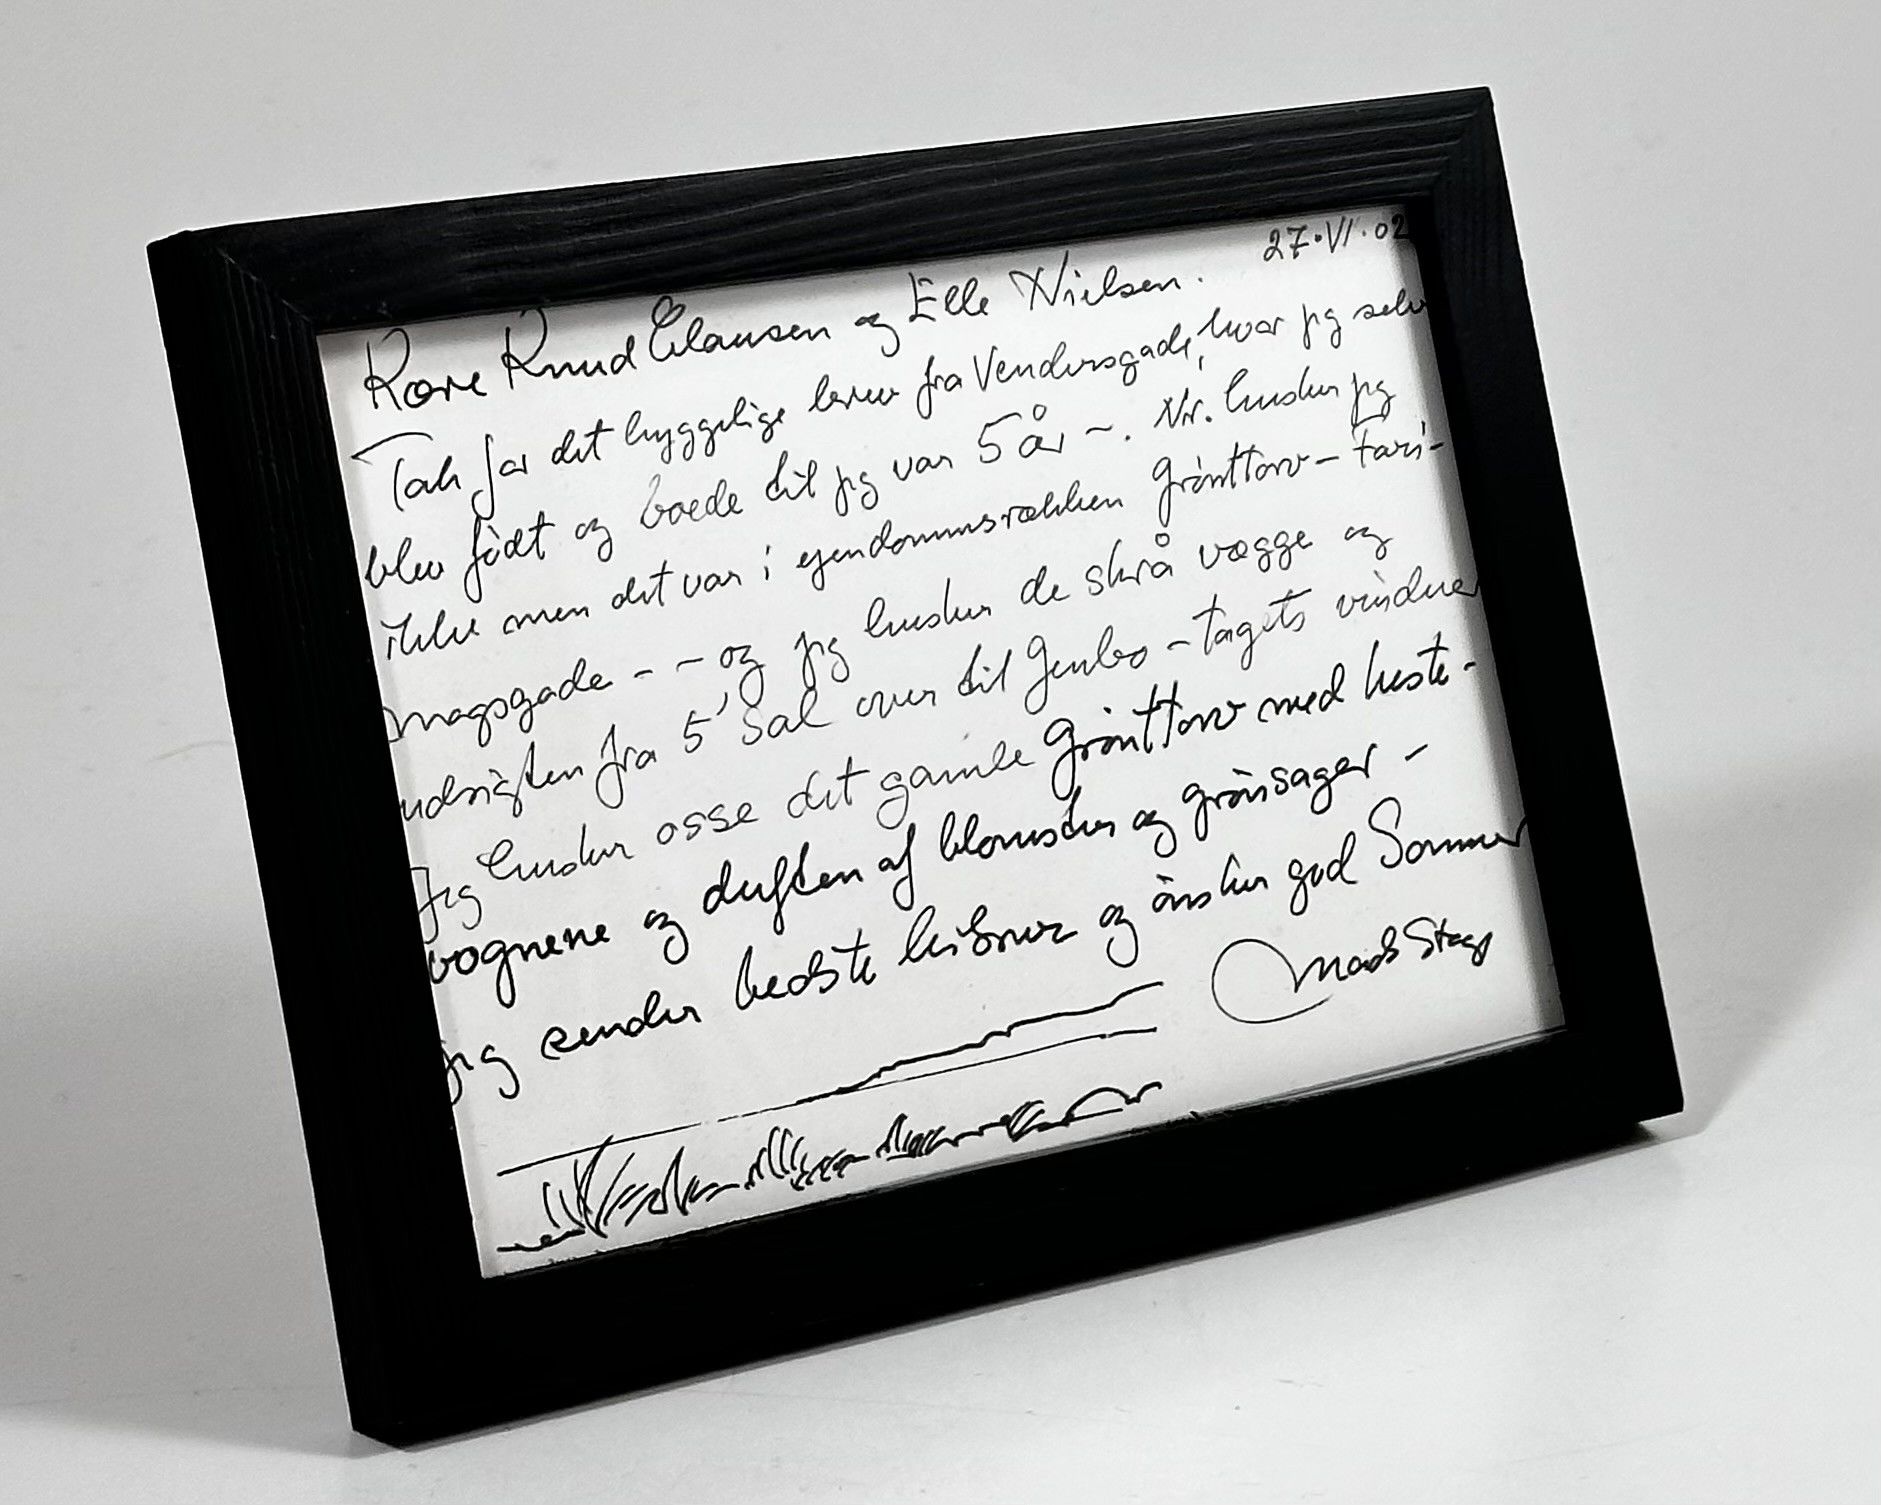 27·VI·02
Kære Knud Clausen og Elle Nielsen.
Tak for det hyggelige brev fra Vendersgade, hvor jeg selv
blev födt og boede til jeg var 5 år –. Nr. husker jeg
ikke men det var i ejendomsrækken Grönttorv – Fari-
magsgade – – og jeg husker de skrå vægge og
udsigten fra 5' Sal over til Genbo – tagets vinduer
Jeg husker osse det gamle Grönttorv med heste-
vognene og duften af blomster og grönsager –
jeg sender bedste hilsner og önsker god Sommer
Mads Stage